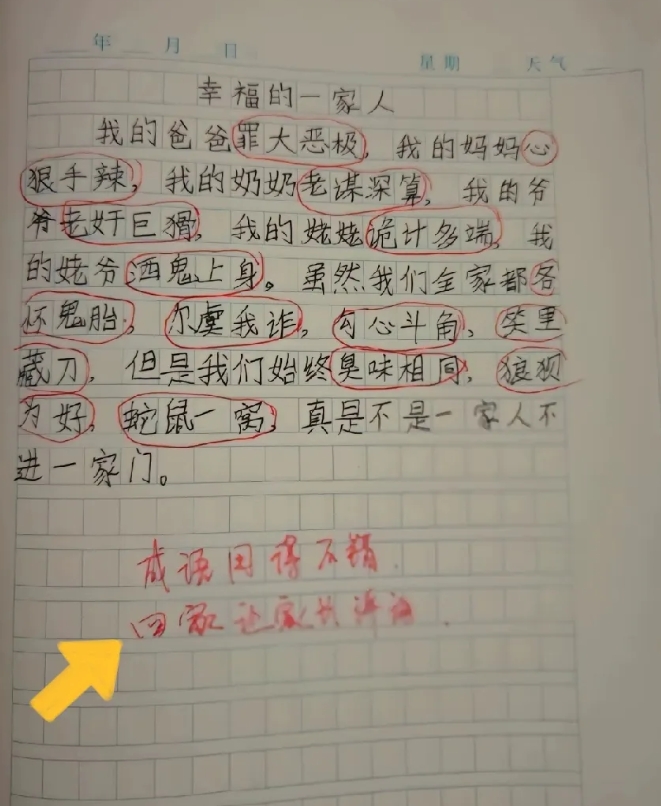 年 月 日 星期 天气
幸福的一家人
我的爸爸罪大恶极，我的妈妈心
狠手辣，我的奶奶老谋深算，我的爷
爷老奸巨猾，我的姥姥诡计多端，我
的姥爷酒鬼上身。虽然我们全家都各
怀鬼胎，尔虞我诈，勾心斗角，笑里
藏刀，但是我们始终臭味相同，狼狈
为奸，蛇鼠一窝，真是不是一家人不
进一家门。
成语用得不错.
回家让家长